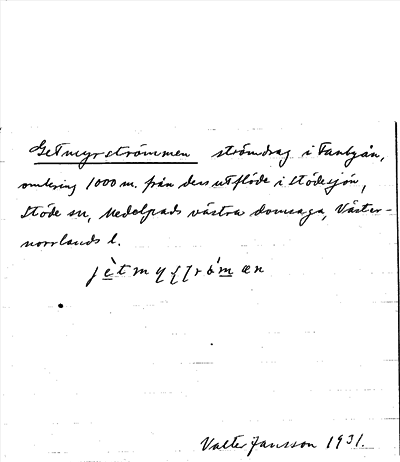 Getmyrströmmen strömdrag i Fanbyån,
omkring 1000 m. från dess utflöde i Stödesjön,
Stöde sn, Medelpads västra domsaga, Väster-
norrlands l.
Valter Jansson 1931.